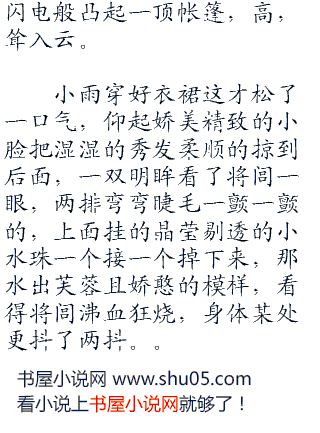 闪电般凸起一顶帐篷，高，
耸入云。
小雨穿好衣裙这才松了
一口气，仰起娇美精致的小
脸把湿湿的秀发柔顺的掠到
后面，一双明眸看了将闾一
眼，两排弯弯睫毛一颤一颤
的，上面挂的晶莹剔透的小
水珠一个接一个掉下来，那
水出芙蓉且娇憨的模样，看
得将闾沸血狂烧，身体某处
更抖了两抖。。
书屋小说网 www.shu05.com
看小说上书屋小说网就够了！